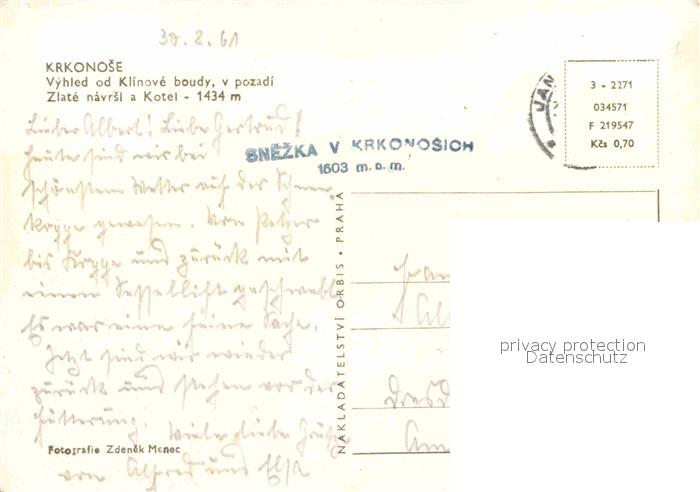 30.8.61
KRKONOŠE
Výhled od Klínové boudy, v pozadí
Zlaté návrší a Kotel - 1434 m
3 - 2271
034571
F 219547
Kčs 0,70
JAN
SNĚŽKA V KRKONOŠÍCH
1603 m.n.m.
Lieber Albert! Liebe Gertrud!
Heute sind wir bei
schönstem Wetter auf der Schnee-
koppe gewesen. Von Petzer
bis Koppe und zurück mit
einem Sessellift geschwebt.
Es war eine feine Sache.
Jetzt sind wir wieder
zurück und stehen vor der
Fütterung. Viele liebe Grüße
von Alfred und Elsa
NAKLADATELSTVÍ ORBIS • PRAHA
Dresd
Am
privacy protection
Datenschutz
Fotografie Zdeněk Menec